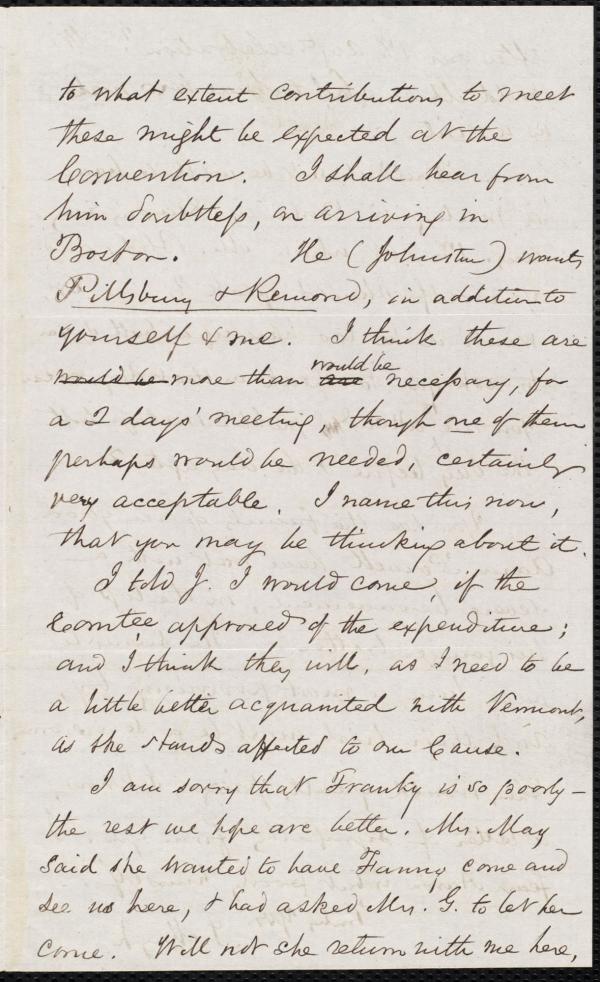 to what extent contributions to meet
these might be expected at the
Convention. I shall hear from
him doubtless, on arriving in
Boston. He (Johnston) wants
Pillsbury & Remond, in addition to
yourself & me. I think these are
would be more than are would be necessary, for
a 2 days' meeting, though one of them
perhaps would be needed, certainly
very acceptable. I name this now,
that you may be thinking about it.
I told J. I would come, if the
Comtee. approved of the expenditure;
and I think they will, as I need to be
a little better acquainted with Vermont,
as she stands affected to our Cause.
I am sorry that Franky is so poorly –
the rest we hope are better. Mrs. May
said she wanted to have Fanny come and
see us here, & had asked Mrs. G. to let her
come. Will not she return with me here,